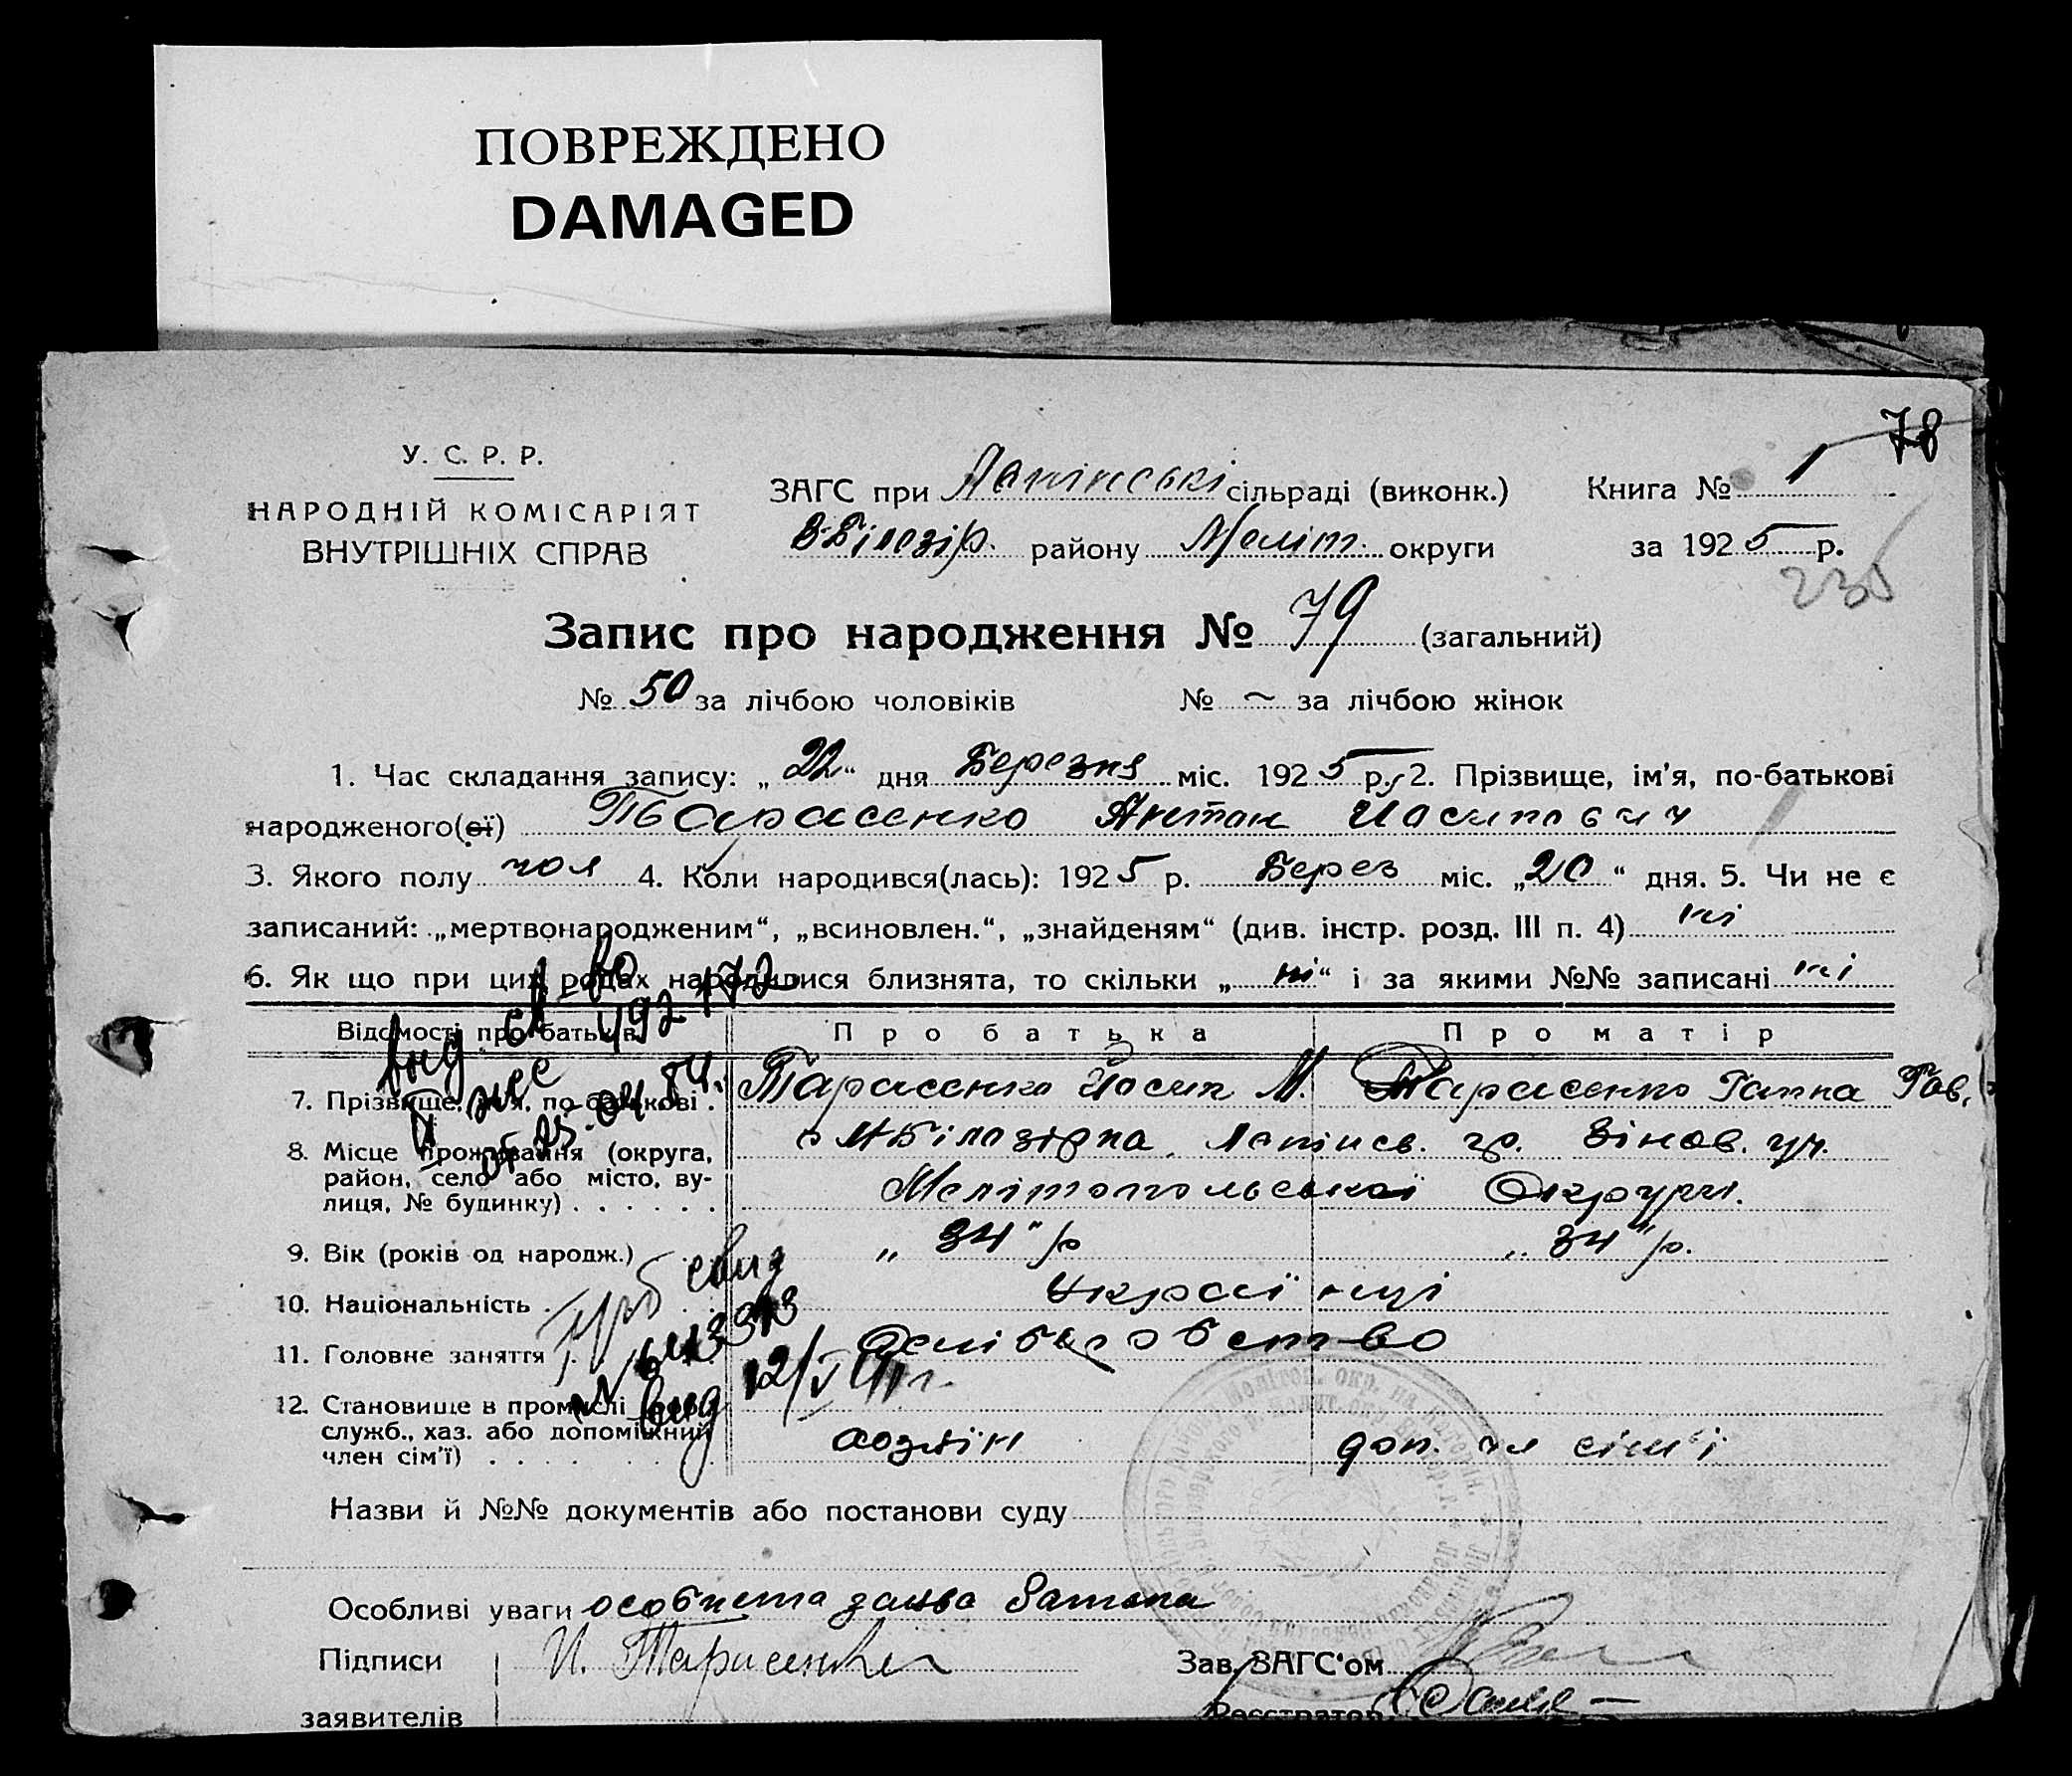 ПОВРЕЖДЕНО
DAMAGED
78
У. С. Р. Р.
НАРОДНІЙ КОМІСАРІЯТ
ВНУТРІШНІХ СПРАВ
ЗАГС при сільраді (виконк.) Книга № 1
В-Білозір. району Меліт. округи за 1925 р.
235
Запис про народження № 79 (загальний)
№ 50 за лічбою чоловіків № ~ за лічбою жінок
1. Час складання запису: „22“ дня Березня міс. 1925 р. 2. Прізвище, ім'я, по-батькові
народженого(ої) Тарасенко Антон Йосипович
3. Якого полу чол 4. Коли народився(лась): 1925 р. Берез міс. „20“ дня. 5. Чи не є
записаний: „мертвонародженим“, „всиновлен.“, „знайденям“ (див. інстр. розд. III п. 4) ні
6. Як що при цих родах народилися близнята, то скільки „ні“ і за якими №№ записані ні
Відомості про батьків Про батька Про матір
7. Прізвище, ім'я, по-батькові . Тарасенко Йосип М. Тарасенко Гапка Гав.
8. Місце проживання (округа,
район, село або місто, ву-
лиця, № будинку) . . . . . . Мелітопольської Округи.
9. Вік (років од народж.) „34“ р „34“ р.
10. Національність . украї нці
11. Головне заняття
12. Становище в промислі
служб., хаз. або допоміжний
член сім'ї) . . . . хозяін доп. чл сім'ї
Назви й №№ документів або постанови суду
Особливі уваги особиста заява батька
Підписи И. Тарасенко Зав. ЗАГС'ом
заявителів Реєстратор